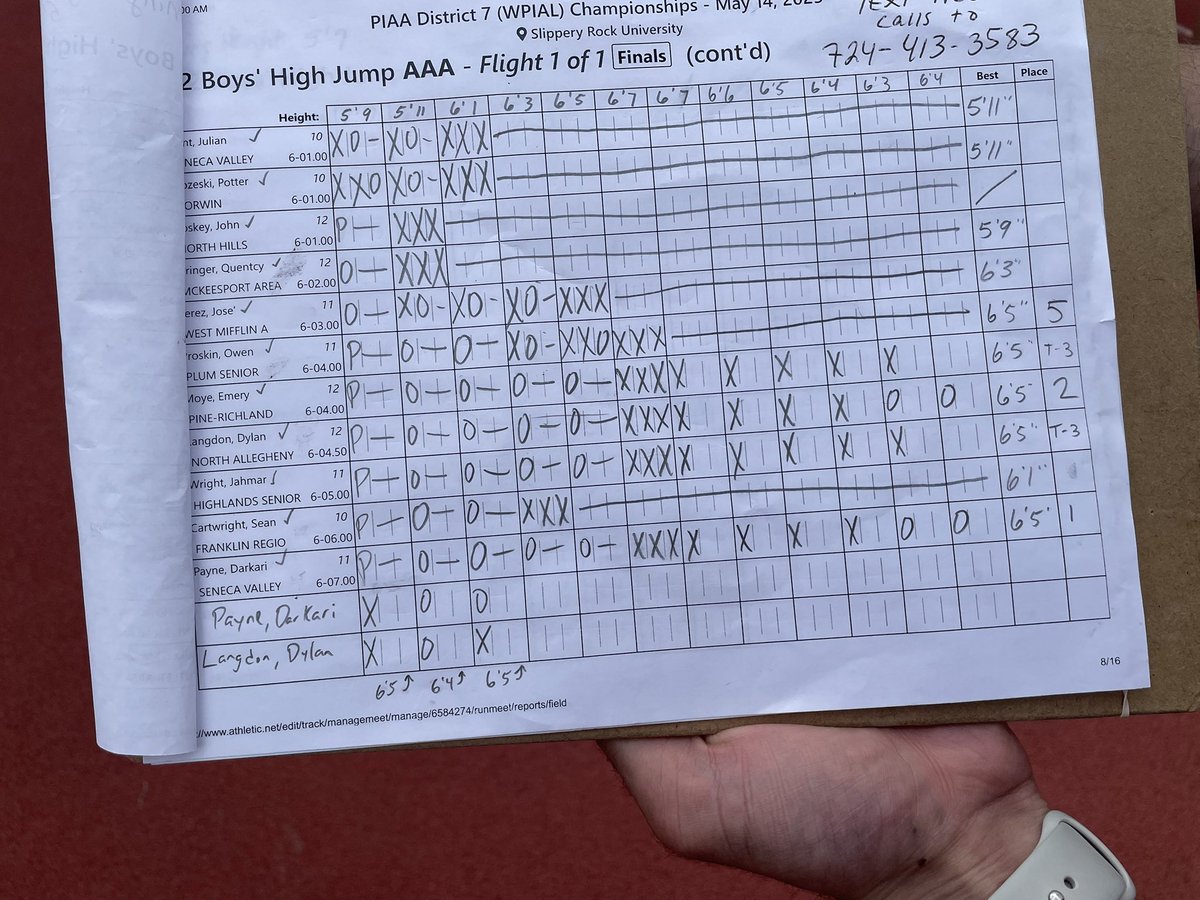 00 AM
PIAA District 7 (WPIAL) Championships - May 14, 2025
Slippery Rock University
calls to
724-413-3583
2 Boys' High Jump AAA - Flight 1 of 1 Finals (cont'd)
Height: 5'9 5'11 6'1 6'3 6'5 6'7 6'7 6'6 6'5 6'4 6'3 6'4 Best Place
nt, Julian ✓ 10 XO- XO- XXX 5'11"
NECA VALLEY 6-01.00
ozeski, Potter ✓ 10 XXO XO- XXX 5'11"
ORWIN 6-01.00
oskey, John ✓ 12 P- XXX /
ORTH HILLS 6-01.00
ringer, Quentcy ✓ 12 O- XXX 5'9"
MCKEESPORT AREA 6-02.00
erez, Jose' ✓ 11 O- XO- XO- XO- XXX 6'3"
WEST MIFFLIN A 6-03.00
roskin, Owen ✓ 11 P- O- O- XO- XXO XXX 6'5" 5
PLUM SENIOR 6-04.00
Moye, Emery ✓ 12 P- O- O- O- O- XXX X X X X X 6'5" T-3
PINE-RICHLAND 6-04.00
Langdon, Dylan ✓ 12 P- O- O- O- O- XXX X X X X O O 6'5" 2
NORTH ALLEGHENY 6-04.50
Wright, Jahmar ✓ 11 P- O- O- O- O- XXX X X X X X 6'5" T-3
HIGHLANDS SENIOR 6-05.00
Cartwright, Sean ✓ 10 P- O- O- XXX 6'1"
FRANKLIN REGIO 6-06.00
Payne, Darkari ✓ 11 P- O- O- O- O- XXX X X X X O O 6'5" 1
SENECA VALLEY 6-07.00
Payne, Darkari X O O
Langdon, Dylan X O X
6'5↑ 6'4↑ 6'5↑
8/16
://www.athletic.net/edit/track/managemeet/manage/6584274/runmeet/reports/field